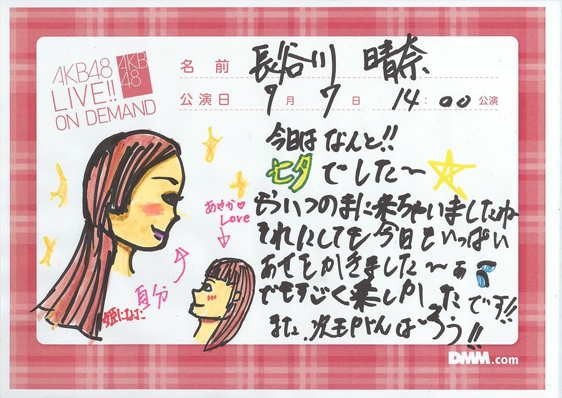 AKB48
LIVE!!
ON DEMAND
AKB
48
名前 長谷川 晴奈
公演日 7月7日 14:00 公演
今日は なんと!!
七夕 でした〜
もういつのまに来ちゃいましたね
それにしても今日もいっぱい
あせをかきました〜
でもすごく楽しかったです!!
また、次もがんばろう!!
あやか♡
Love
自分
姫になった
DMM.com